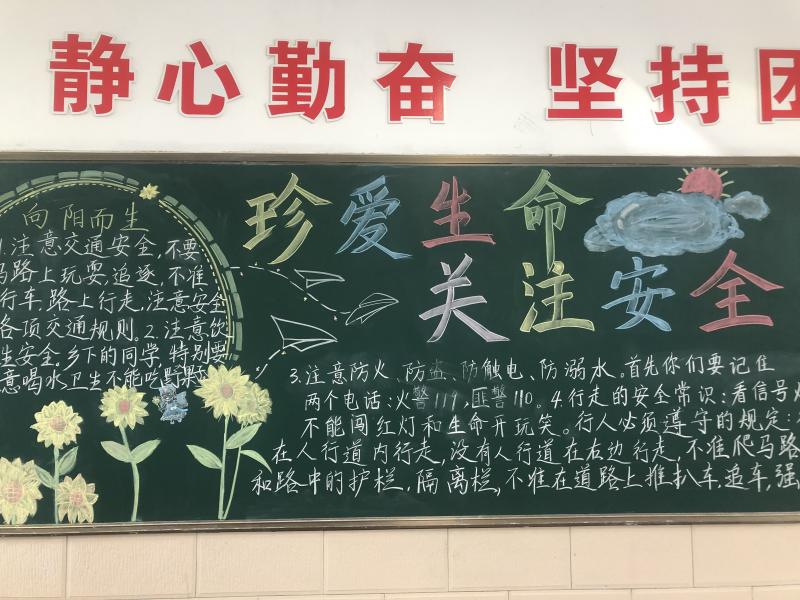 静心勤奋 坚持团
向阳而生
1.注意交通安全,不要
马路上玩耍,追逐,不准
行车,路上行走,注意安全
各项交通规则。2.注意饮
生安全.乡下的同学,特别要
意喝水卫生不能吃野果
珍爱生命
关注安全
3.注意防火、防盗、防触电、防溺水。首先你们要记住
两个电话:火警119,匪警110。4.行走的安全常识:看信号灯
不能闯红灯和生命开玩笑。行人必须遵守的规定:
在人行道内行走,没有人行道在右边行走,不准爬马路
和路中的护栏,隔离栏,不准在道路上推扒车,追车,强